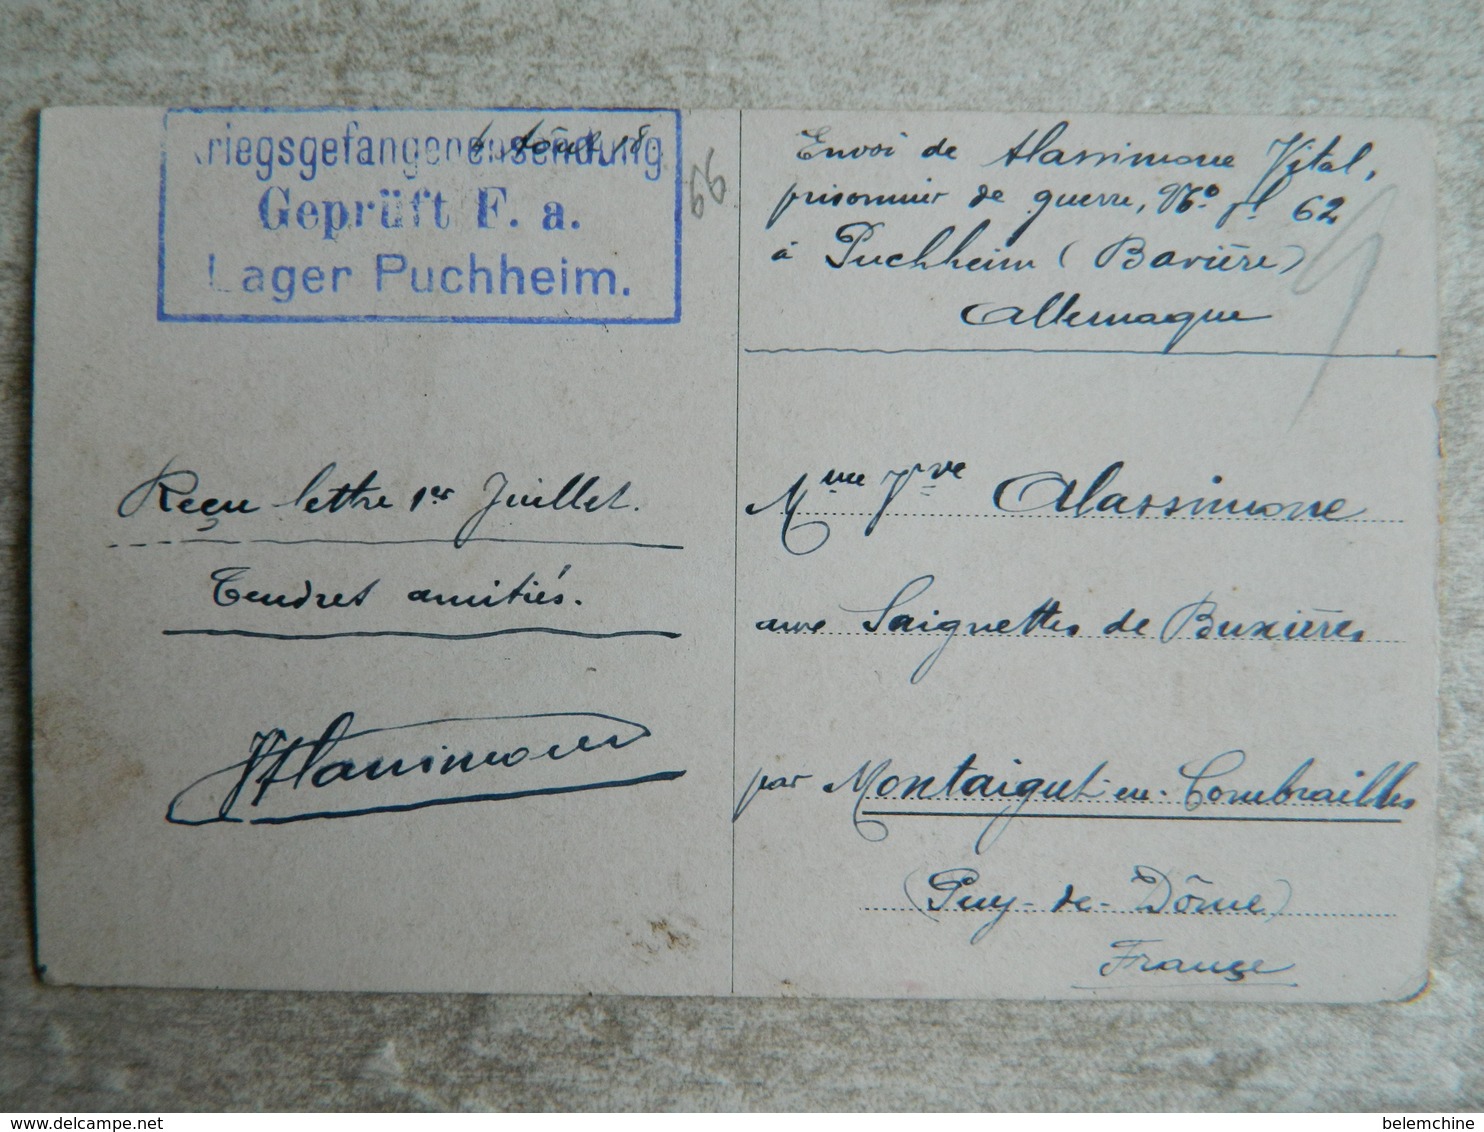 Kriegsgefangenensendung
Août 18.
Geprüft F. a.
Lager Puchheim.
66
Envoi de Alassimone Vital,
prisonnier de guerre, N° 62
à Puchheim (Bavière)
Allemagne
Reçu lettre 1er Juillet.
Tendres amitiés.
VAlassimone
Mme Vve Alassimone
aux Saignettes de Buxières
par Montaigut-en-Combrailles
(Puy-de-Dôme)
France
delcampe.net
belemchine